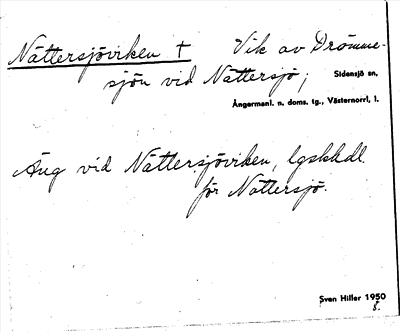 Nättersjöviken † Vik av Drömme-
sjön vid Nättersjö; Sidensjö sn,
Ångermanl. n. doms. tg., Västernorrl, l.
Äng vid Nättersjöviken, lgskhdl
för Nättersjö.
Sven Hiller 1950
8.